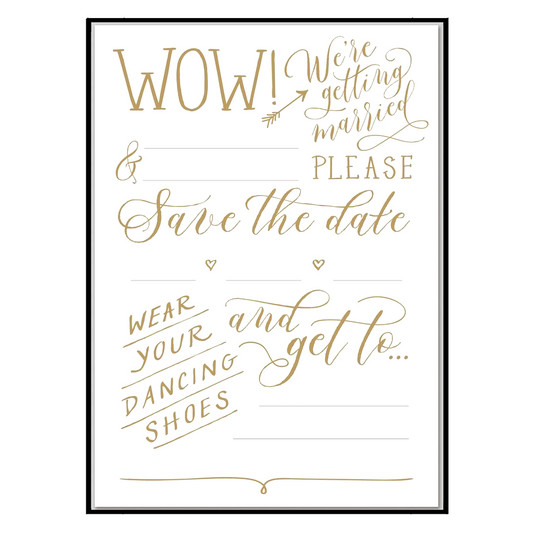 WOW!
We're
getting
married
&
PLEASE
Save the date
WEAR
YOUR
DANCING
SHOES
and
get to...